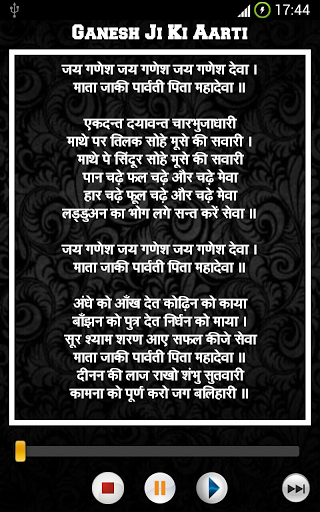 17:44
Ganesh Ji Ki Aarti
जय गणेश जय गणेश जय गणेश देवा ।
माता जाकी पार्वती पिता महादेवा ॥
एकदन्त दयावन्त चारभुजाधारी
माथे पर तिलक सोहे मूसे की सवारी ।
माथे पे सिंदूर सोहे मूसे की सवारी
पान चढ़े फल चढ़े और चढ़े मेवा
हार चढ़े फूल चढ़े और चढ़े मेवा
लड्डुअन का भोग लगे सन्त करें सेवा ॥
जय गणेश जय गणेश जय गणेश देवा ।
माता जाकी पार्वती पिता महादेवा ॥
अंघे को आँख देत कोढ़िन को काया
बाँझन को पुत्र देत निर्धन को माया ।
सूर श्याम शरण आए सफल कीजे सेवा
माता जाकी पार्वती पिता महादेवा ॥
दीनन की लाज राखो शंभु सुतवारी
कामना को पूर्ण करो जग बलिहारी ॥